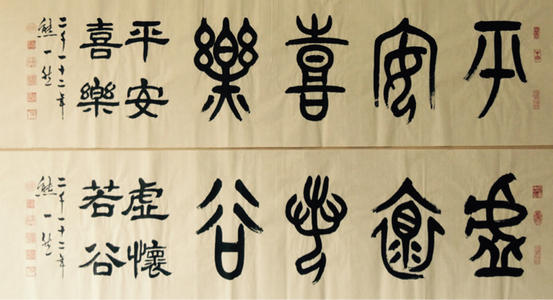 平安喜樂
平安
喜樂
二千一十二年
熊一
虛懷若谷
虛懷
若谷
二千一十二年
熊一